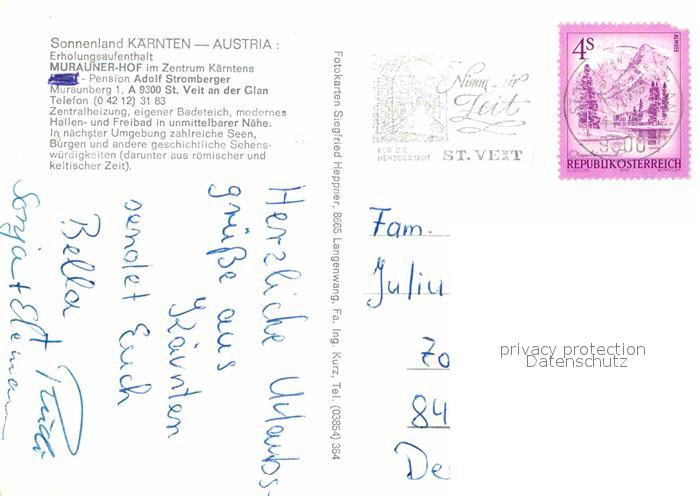 Sonnenland KÄRNTEN — AUSTRIA :
Erholungsaufenthalt
MURAUNER-HOF im Zentrum Kärntens
- Pension Adolf Stromberger
Muraunberg 1, A 9300 St. Veit an der Glan
Telefon (0 42 12) 31 83
Zentralheizung, eigener Badeteich, modernes
Hallen- und Freibad in unmittelbarer Nähe.
In nächster Umgebung zahlreiche Seen,
Burgen und andere geschichtliche Sehens-
würdigkeiten (darunter aus römischer und
keltischer Zeit).
Fotokarten Siegfried Heppner, 8665 Langenwang, Fa. Ing. Kurz, Tel. (03854) 384
Nimm dir
Zeit
FÜR DIE
HERZOGSTADT ST. VEIT
4S
ALMSEE
9300
REPUBLIK ÖSTERREICH
Herzliche Urlaubs-
grüße aus
Kärnten
sendet Euch
Bella
Sonja +
Fam.
Juliu
Zo
84
De
privacy protection
Datenschutz